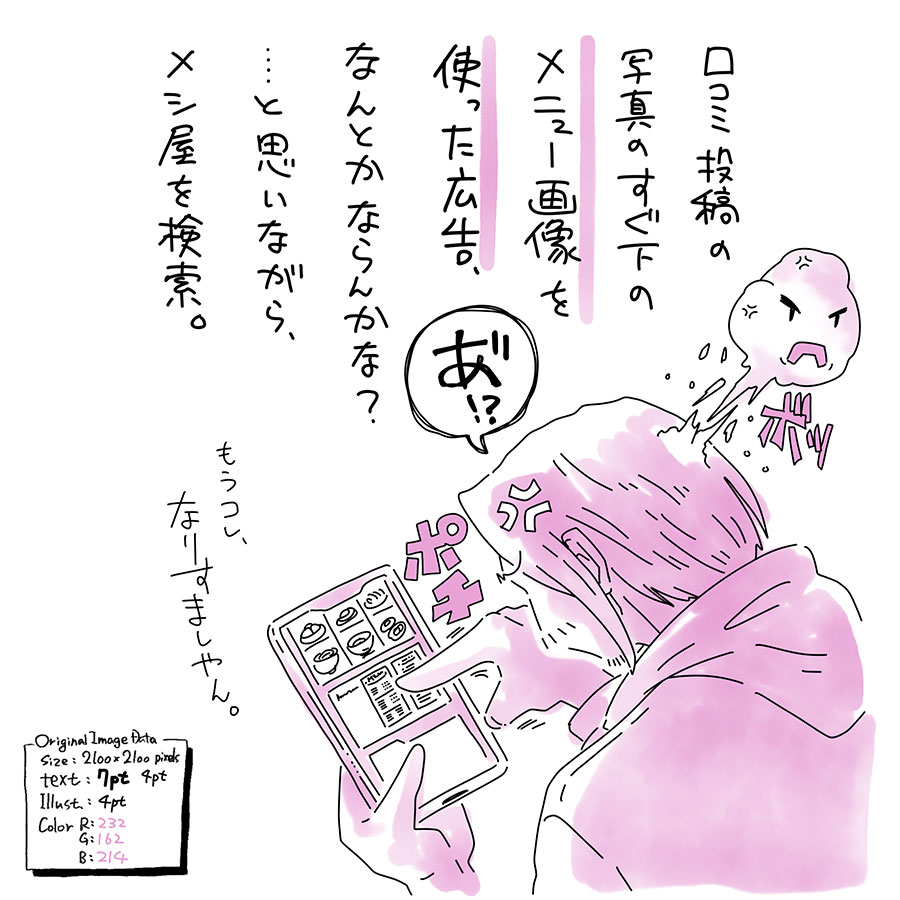 口コミ投稿の
写真のすぐ下の
メニュー画像を
使った広告、
なんとかならんかな？
……と思いながら、
メシ屋を検索。
あ゛!?
ボッ
ポチ
もうコレ、
なりすましやん。
Original Image Data
Size: 2100×2100 pixels
text: 7pt 4pt
Illust.: 4pt
Color R:232
G:162
B:214